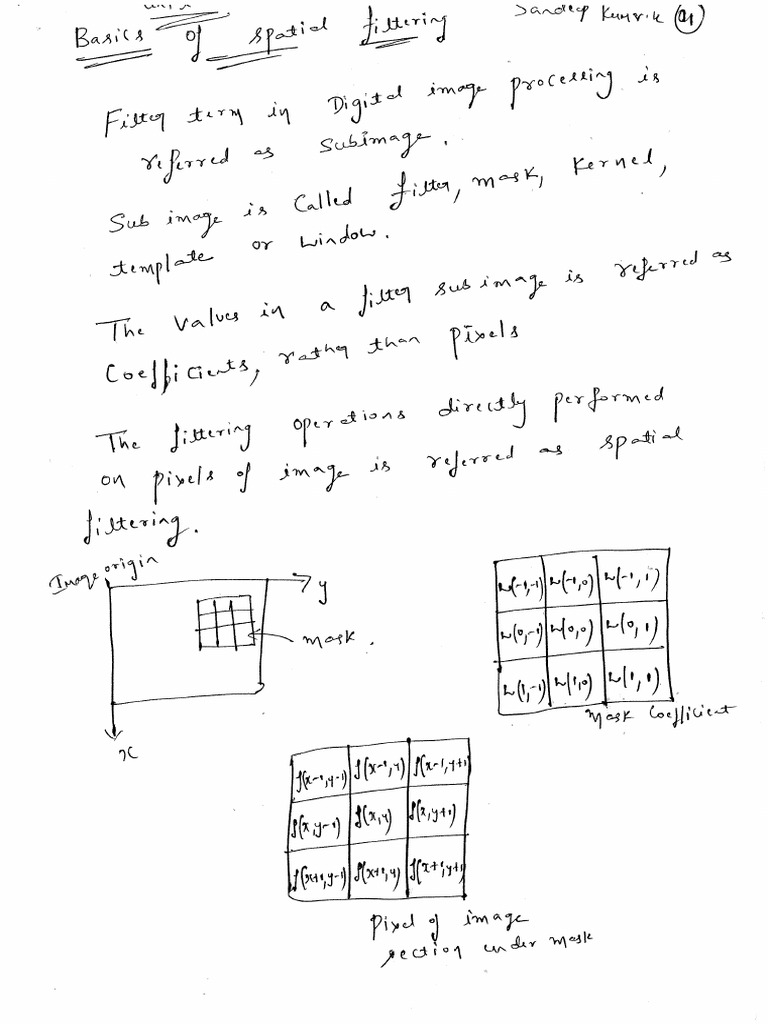 Basics of spatial filtering
Sandeep
Filter term in Digital image processing is
referred as subimage.
Sub image is called filter, mask, kernel,
template or window.
The values in a filter subimage is referred as
Coefficients, rather than pixels
The filtering operations directly performed
on pixels of image is referred as spatial
filtering.
Image origin
y
mask.
x
w(-1,-1) w(-1,0) w(-1,1)
w(0,-1) w(0,0) w(0,1)
w(1,-1) w(1,0) w(1,1)
mask Coefficient
f(x-1,y-1) f(x-1,y) f(x-1,y+1)
f(x,y-1) f(x,y) f(x,y+1)
f(x+1,y-1) f(x+1,y) f(x+1,y+1)
Pixel of image
section under mask